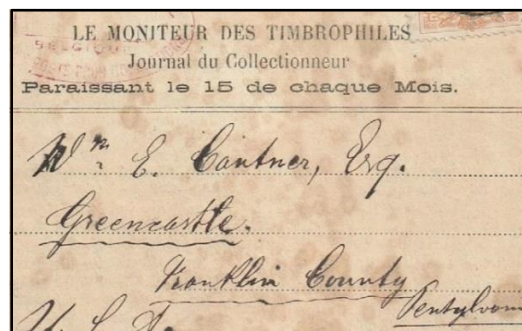 LE MONITEUR DES TIMBROPHILES
Journal du Collectionneur
Paraissant le 15 de chaque Mois.
Wm E. Cantner, Esq.
Greencastle.
Franklin County
U. S. A.